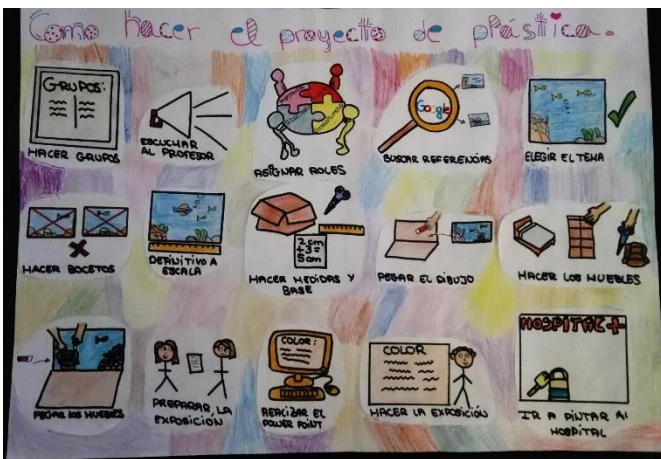 Como hacer el proyecto de plástica.
GRUPOS:
HACER GRUPOS
ESCUCHAR
AL PROFESOR
ASIGNAR ROLES
Google
BUSCAR REFERENCIAS
ELEGIR EL TEMA
HACER BOCETOS
DEFINITIVO A
ESCALA
2 cm
+3=
5 cm
HACER MEDIDAS Y
BASE
PEGAR EL DIBUJO
HACER LOS MUEBLES
PEGAR LOS MUEBLES
PREPARAR LA
EXPOSICIÓN
COLOR:
REALIZAR EL
POWER POINT
COLOR
HACER LA EXPOSICIÓN
HOSPITAL +
IR A PINTAR AL
HOSPITAL